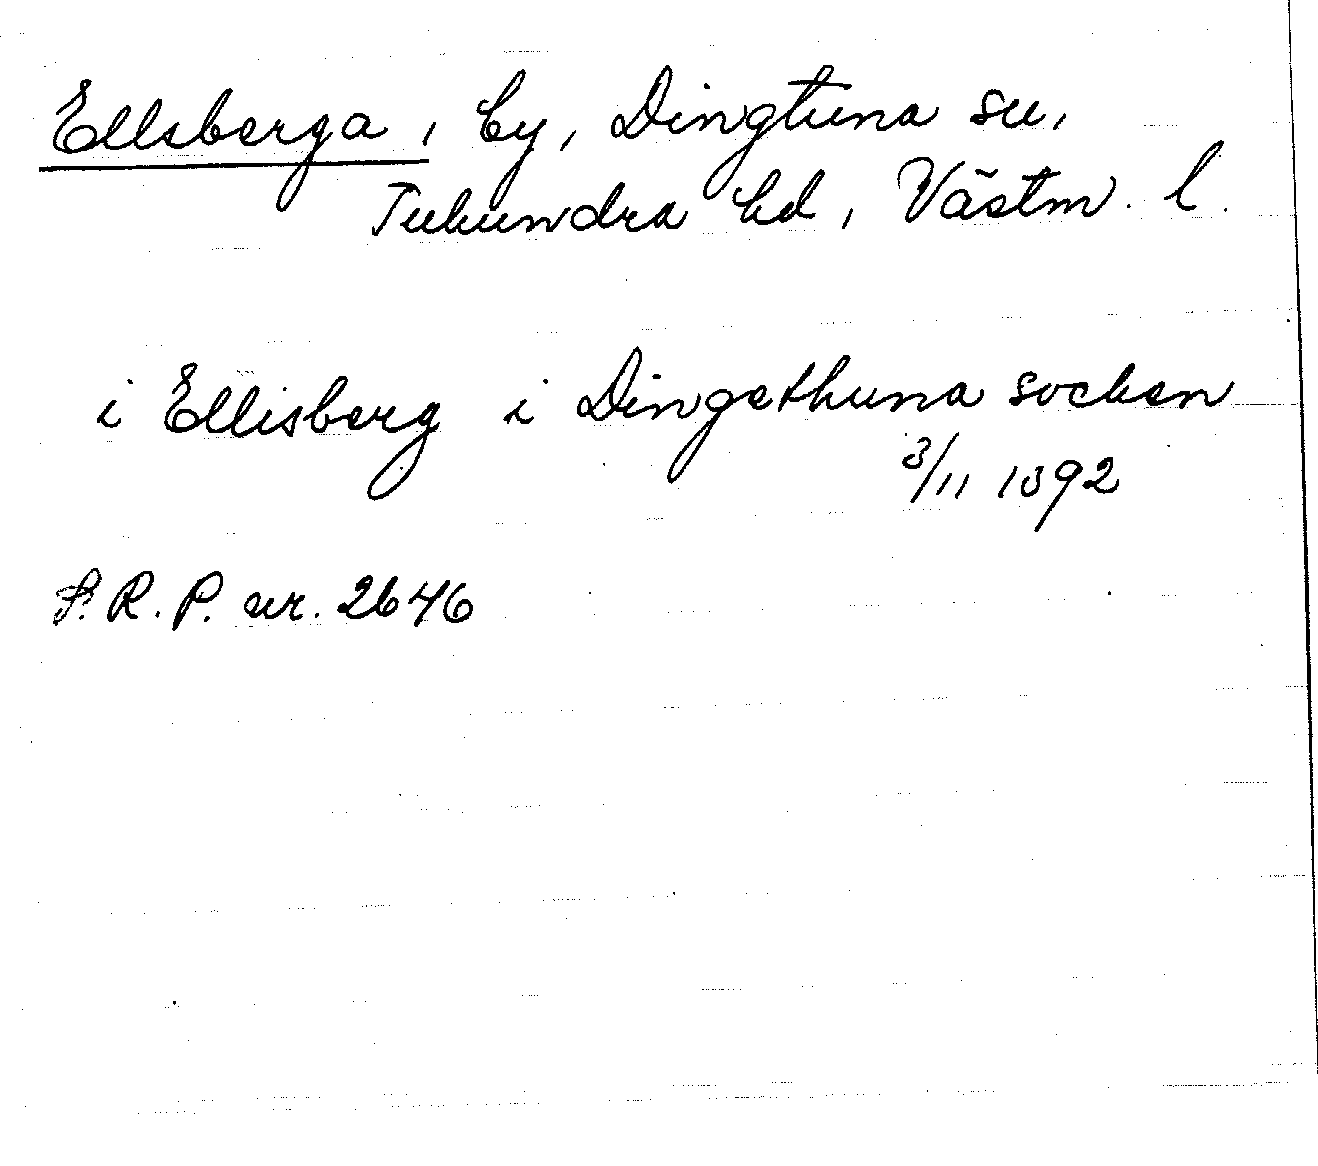 Ellsberga, by, Dingtuna sn,
Tuhundra hd, Västm. l.
i Ellisberg i Dingethuna socken
3/11 1392
S.R.P. nr. 2646